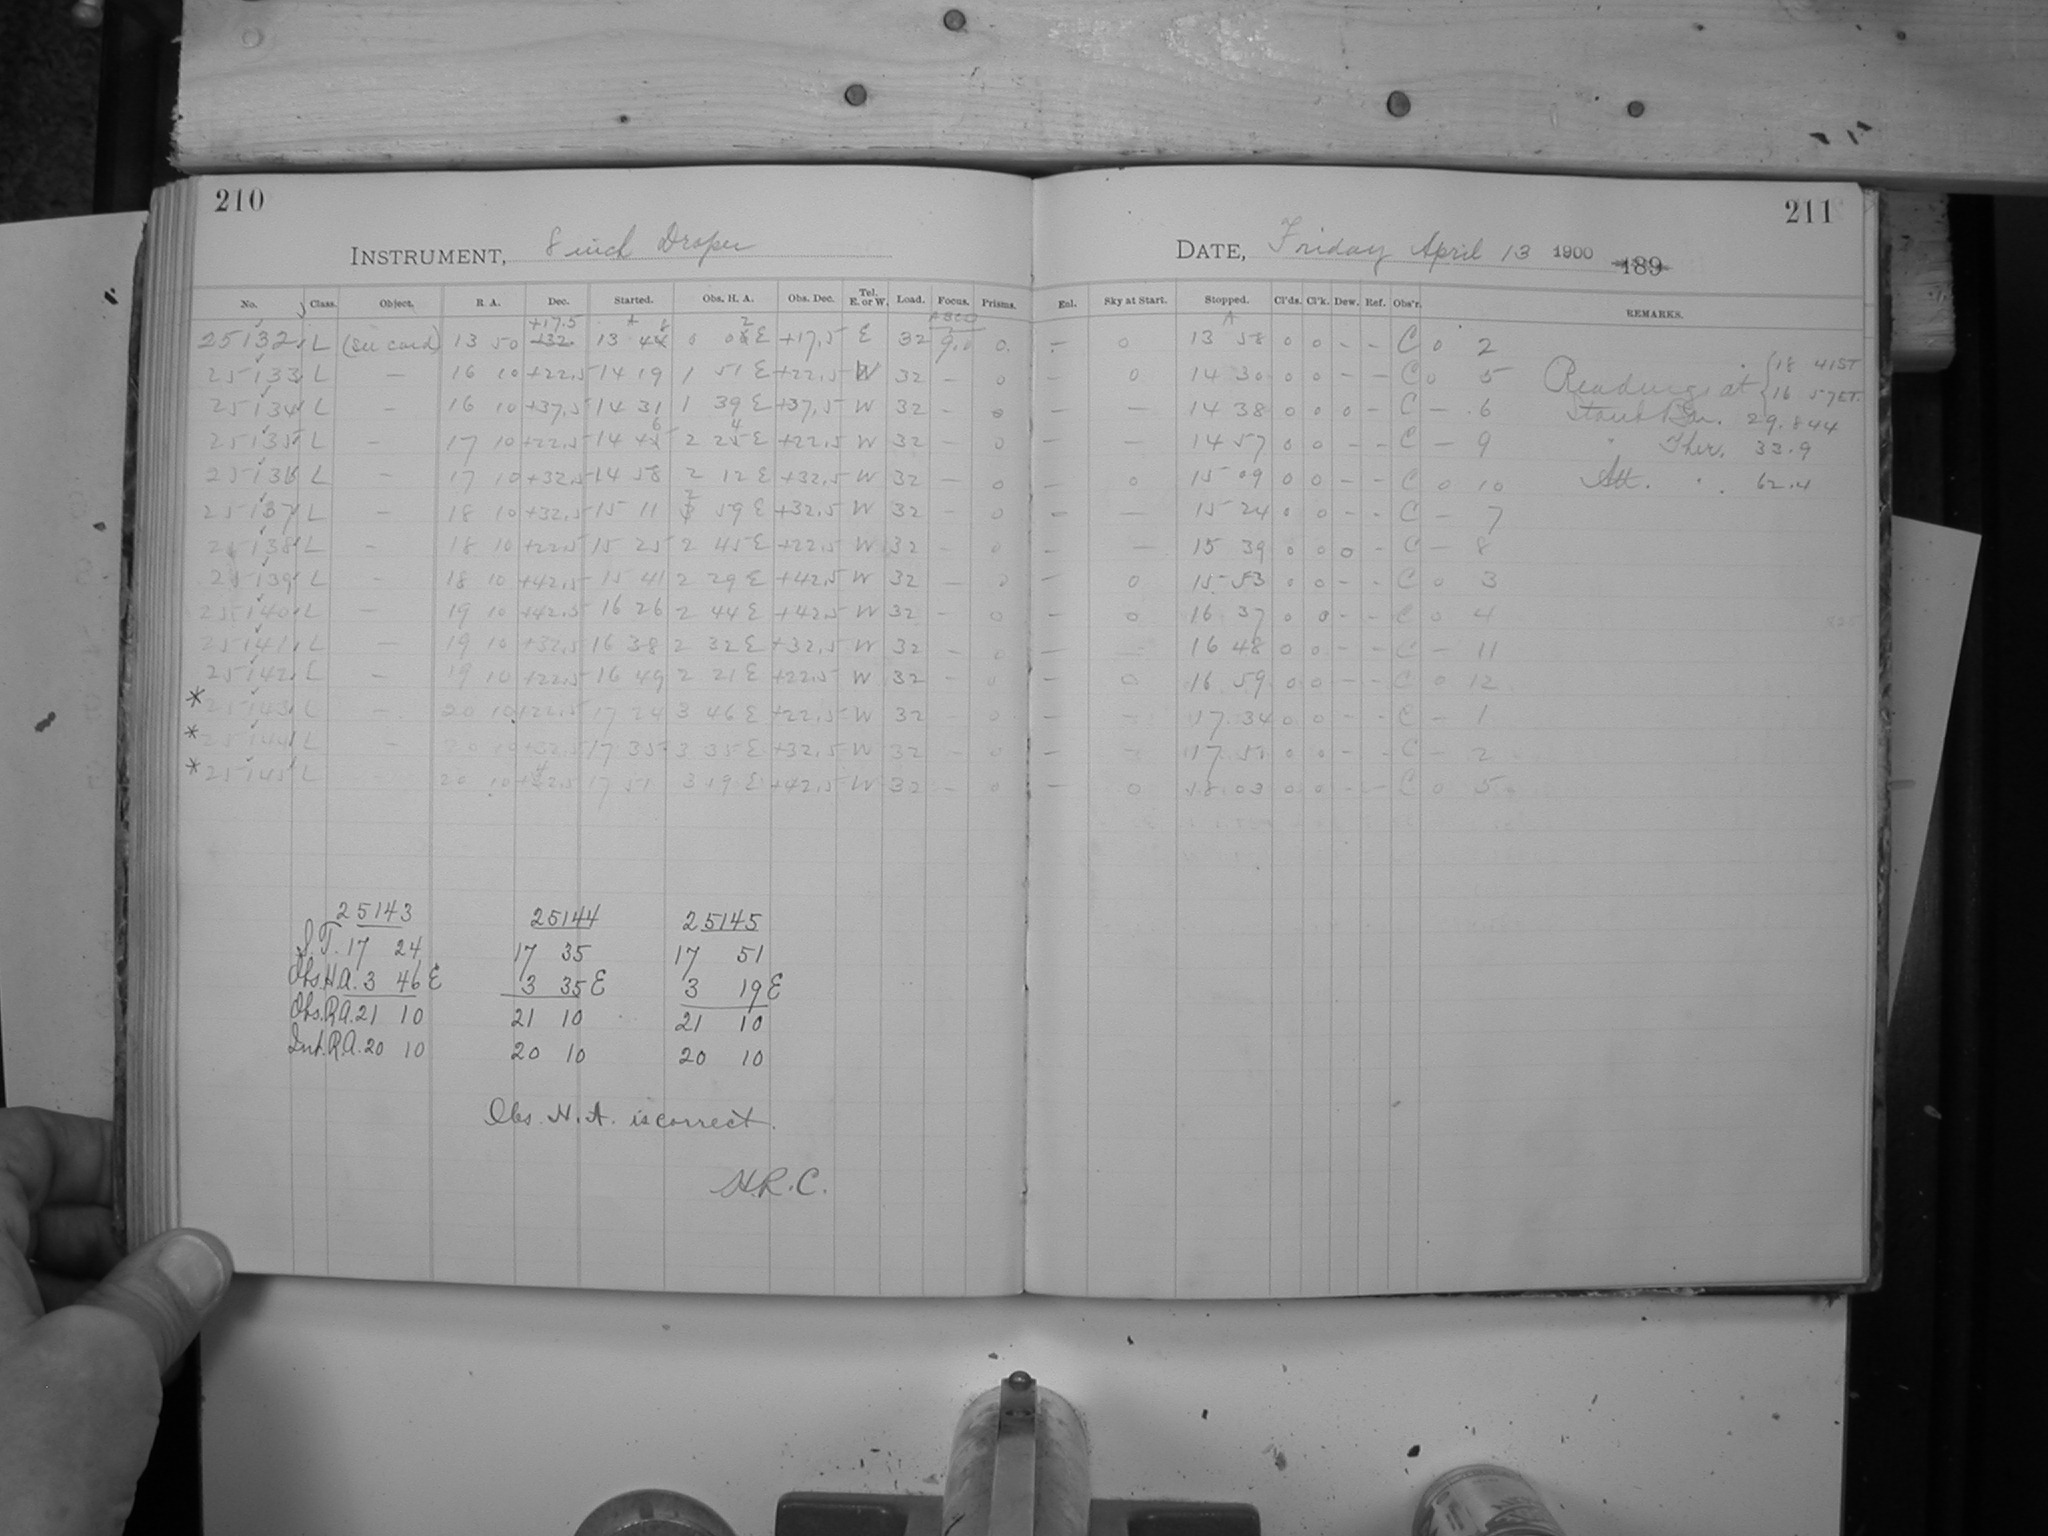 210
INSTRUMENT, 8 inch Draper
No. Class. Object. R. A. Dec. Started. Obs. H. A. Obs. Dec. Tel. E. or W. Load. Focus. Prisms.
25132 L (see card) 13 50 +32 +17.5 13 44 0 02 E +17.5 E 32 9.0 0
25133 L — 16 10 +22.5 14 19 1 51 E +22.5 W 32 — 0
25134 L — 16 10 +37.5 14 31 1 39 E +37.5 W 32 — 0
25135 L — 17 10 +22.5 14 46 2 24 E +22.5 W 32 — 0
25136 L — 17 10 +32.5 14 58 2 12 E +32.5 W 32 — 0
25137 L — 18 10 +32.5 15 11 2 59 E +32.5 W 32 — 0
25138 L — 18 10 +22.5 15 25 2 45 E +22.5 W 32 — 0
25139 L — 18 10 +42.5 15 41 2 29 E +42.5 W 32 — 0
25140 L — 19 10 +42.5 16 26 2 44 E +42.5 W 32 — 0
25141 L — 19 10 +32.5 16 38 2 32 E +32.5 W 32 — 0
25142 L — 19 10 +22.5 16 49 2 21 E +22.5 W 32 — 0
* 25143 L — 20 10 +22.5 17 24 3 46 E +22.5 W 32 — 0
* 25144 L — 20 10 +32.5 17 35 3 35 E +32.5 W 32 — 0
* 25145 L 20 10 +42.5 17 51 3 19 E +42.5 W 32 — 0
25143 25144 25145
S.T. 17 24 17 35 17 51
Obs. H.A. 3 46 E 3 35 E 3 19 E
Obs. R.A. 21 10 21 10 21 10
Int. R.A. 20 10 20 10 20 10
Obs. H.A. is correct.
H.R.C.
211
DATE, Friday April 13 1900 189
Enl. Sky at Start. Stopped. Cl'ds. Cl'k. Dew. Ref. Obs'r. REMARKS.
— 0 13 58 0 0 - - C 0 2
— 0 14 30 0 0 - - C 0 5 Readings at { 18 41 ST
— — 14 38 0 0 0 - C — 6 16 57 ET.
Stand Bar. 29.844
— — 14 57 0 0 - - C — 9 " Ther. 33.9
— 0 15 09 0 0 - - C 0 10 Att. " 62.4
— — 15 24 0 0 - - C — 7
— — 15 39 0 0 0 - C — 8
— 0 15 53 0 0 - - C 0 3
— 0 16 37 0 0 - - C 0 4
— — 16 48 0 0 - - C — 11
— 0 16 59 0 0 - - C 0 12
— — 17 34 0 0 - - C — 1
— — 17 0 0 - - C — 2
— 0 18 03 0 0 - - C 0 5